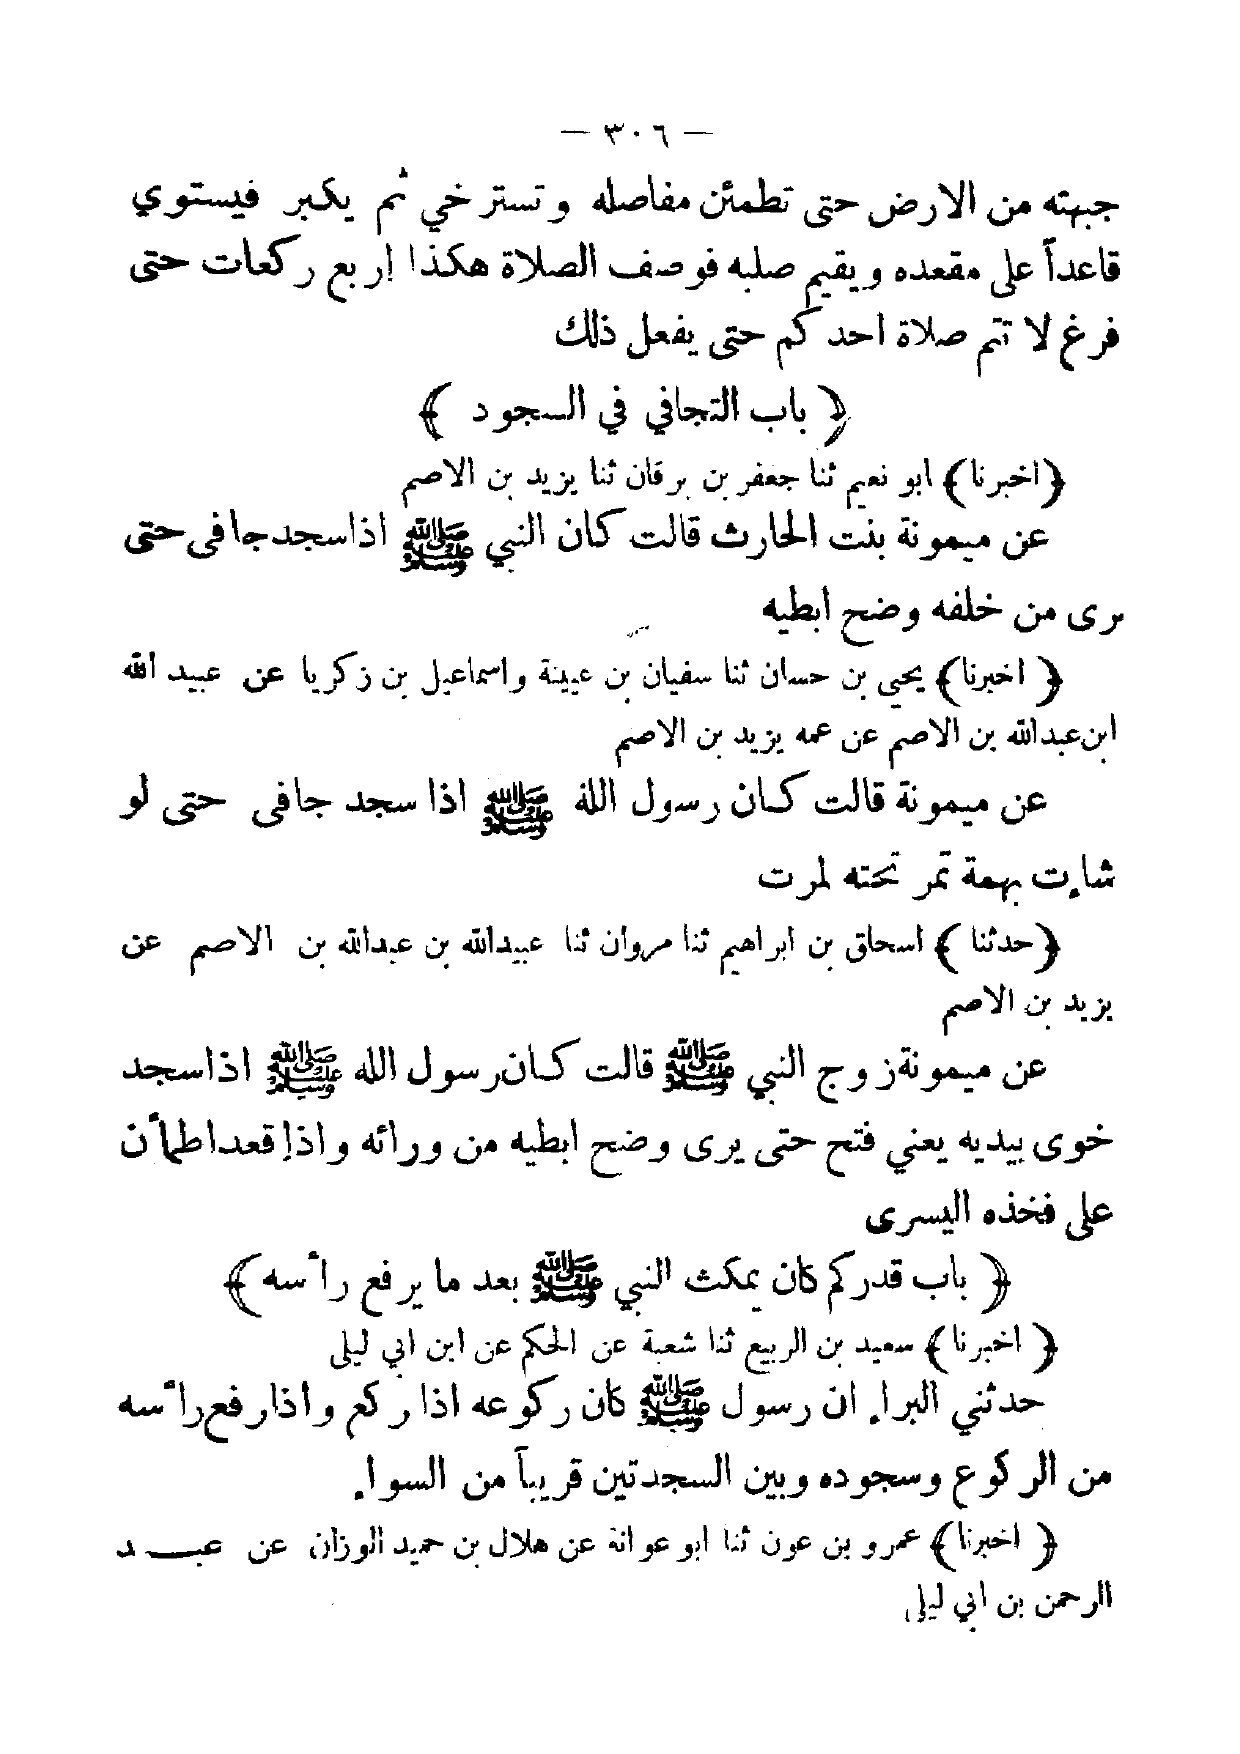 — ٣٠٦ —
جبهته من الارض حتى تطمئن مفاصله وتسترخي ثم يكبر فيستوي
قاعداً على مقعده ويقيم صلبه فوصف الصلاة هكذا اربع ركعات حتى
فرغ لا تتم صلاة احدكم حتى يفعل ذلك
﴿ باب التجافي في السجود ﴾
﴿اخبرنا﴾ ابو نعيم ثنا جعفر بن برقان ثنا يزيد بن الاصم
عن ميمونة بنت الحارث قالت كان النبي ﷺ اذا سجد جافى حتى
يرى من خلفه وضح ابطيه
﴿ اخبرنا﴾ يحيى بن حسان ثنا سفيان بن عيينة واسماعيل بن زكريا عن عبيد الله
ابن عبدالله بن الاصم عن عمه يزيد بن الاصم
عن ميمونة قالت كان رسول الله ﷺ اذا سجد جافى حتى لو
شاءت بهمة تمر تحته لمرت
﴿حدثنا ﴾ اسحاق بن ابراهيم ثنا مروان ثنا عبيدالله بن عبدالله بن الاصم عن
يزيد بن الاصم
عن ميمونة زوج النبي ﷺ قالت كان رسول الله ﷺ اذا سجد
خوى بيديه يعني فتح حتى يرى وضح ابطيه من ورائه واذا قعد اطمأن
على فخذه اليسرى
﴿ باب قدركم كان يمكث النبي ﷺ بعد ما يرفع رأسه﴾
﴿ اخبرنا﴾ سعيد بن الربيع ثنا شعبة عن الحكم عن ابن ابي ليلى
حدثني البراء ان رسول ﷺ كان ركوعه اذا ركع واذا رفع رأسه
من الركوع وسجوده وبين السجدتين قريباً من السواء
﴿ اخبرنا﴾ عمرو بن عون ثنا ابو عوانة عن هلال بن حميد الوزان عن عبـــد
الرحمن بن ابي ليلى